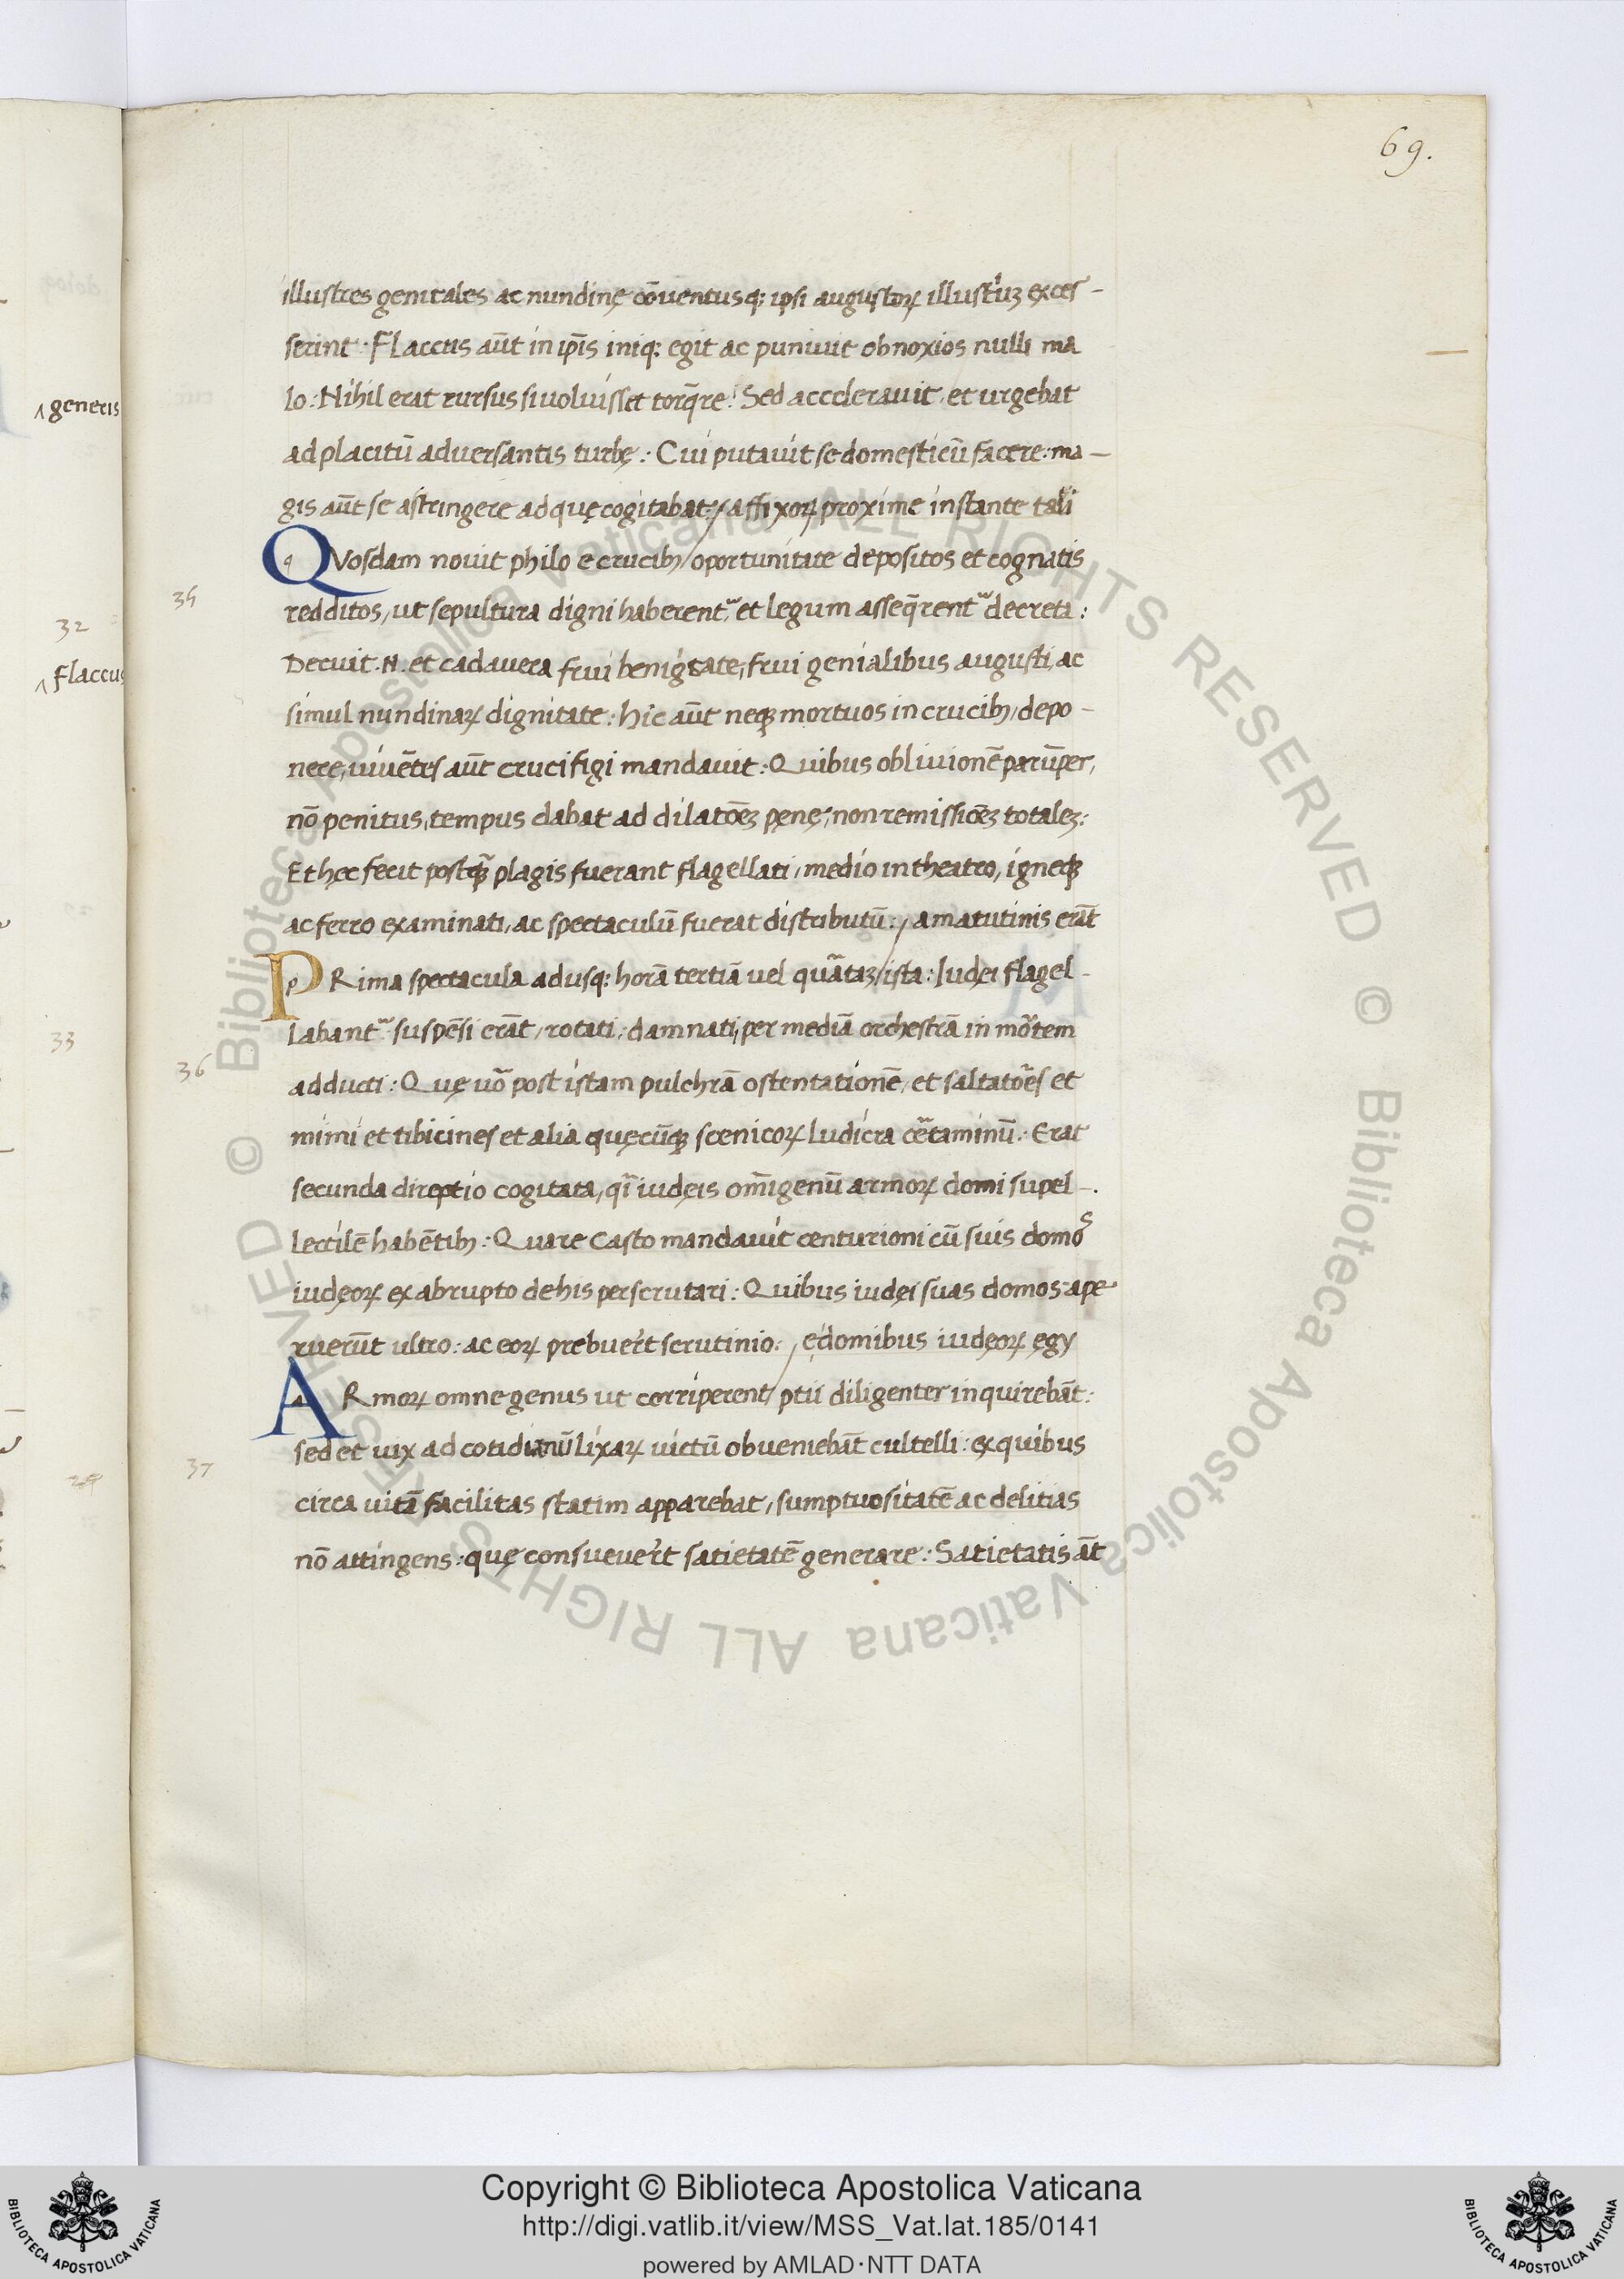 69.
illustres genitales ac nundinę cōuentusq; ipsi augustoꝝ illustriuꝫ exces-
serint: Flaccus aūt in ip̄is iniq; egit ac puniuit obnoxios nulli ma
lo: Nihil erat rursus si uoluisset torq̄re: Sed accelerauit, et urgebat
ad placitū aduersantis turbę: Cui putauit se domesticū facere: ma-
gis aūt se astringere ad quę cogitabat: / affixoꝝ proxime instante tali
QVosdam nouit philo e crucibꝫ / oportunitate depositos et cognatis
35
redditos, ut sepultura digni haberent᷑, et legum asseq̄rent᷑ decreta:
Decuit .N. et cadauera frui benigtate, frui genialibus augusti, ac
simul nundinaꝝ dignitate: hic aūt neqꝫ mortuos in crucibꝫ, depo-
nere, uiuētes aūt crucifigi mandauit: Quibus obliuionē parūper,
nō penitus, tempus dabat ad dilatōeꝫ penę, non remissiōeꝫ totaleꝫ:
Et hęc fecit postqꝫ̄ plagis fuerant flagellati, medio in theatro, igneqꝫ
ac ferro examinati, ac spectaculū fuerat distributū: / a matutinis erāt
PRima spectacula adusq; horā tertiā uel quātaꝫ / ista: Iudęi flagel-
labant᷑ suspēsi erāt, rotati, damnati, per mediā orchestrā in mortem
36
adducti: Quę uō post istam pulchrā ostentationē, et saltatōes et
mimi et tibicines et alia quęcūqꝫ scenicoꝝ ludicra cētaminū: Erat
secunda direptio cogitata, qī iudęis om̄igenū armoꝝ domi supel-
lectilē habētibꝫ: Quare Casto mandauit centurioni cū suis domos
iudęoꝝ ex abrupto de his perscrutari: Quibus iudęi suas domos ape
ruerūt ultro: ac eoꝝ prebuert scrutinio: / ędomibus iudęoꝝ ęgy
ARmoꝝ omne genus ut corriperent / ptii diligenter inquirebāt:
sed et uix ad cotidianū lixaꝝ uictū obueniebāt cultelli: ex quibus
37
circa uitā facilitas statim apparebat, sumptuositatē ac delitias
nō attingens: quę consueuert satietatē generare: Satietatis āt
generis
32
Flaccus
33
Copyright © Biblioteca Apostolica Vaticana
http://digi.vatlib.it/view/MSS_Vat.lat.185/0141
powered by AMLAD·NTT DATA
BIBLIOTECA APOSTOLICA VATICANA
BIBLIOTECA APOSTOLICA VATICANA
© Biblioteca Apostolica Vaticana ALL RIGHTS RESERVED © Biblioteca Apostolica Vaticana ALL RIGHTS RESERVED